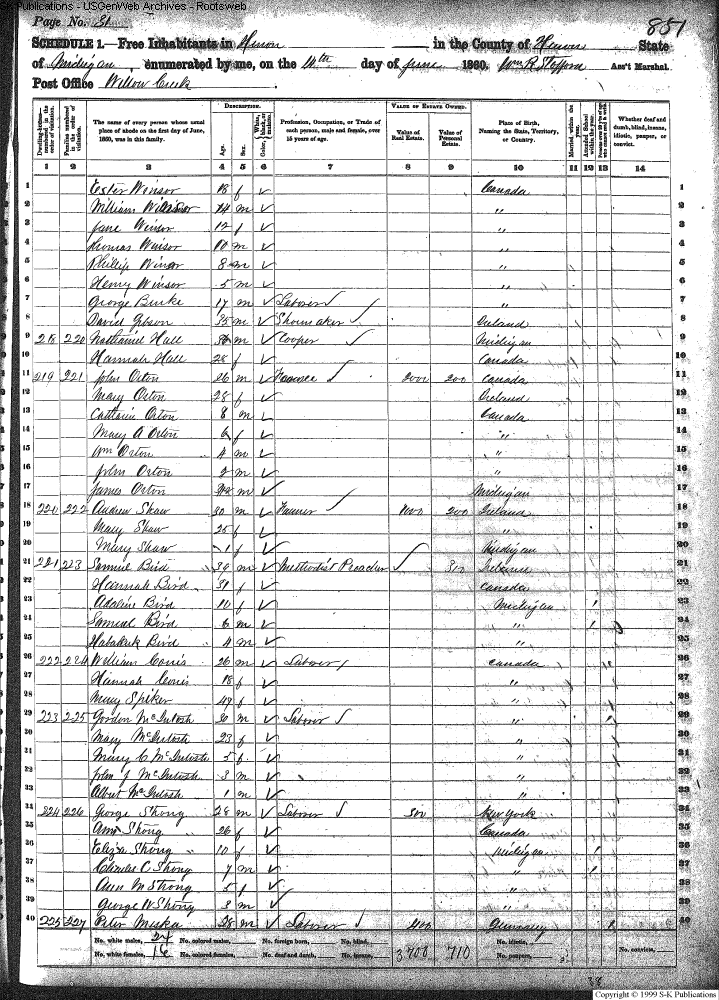 S-K Publications - USGenWeb Archives - Rootsweb
Page No.
851
SCHEDULE 1.—Free Inhabitants in Huron in the County of Huron State
of Michigan, enumerated by me, on the 14th day of June 1860. Wm R Stafford Ass't Marshal.
Post Office Willow Creek.
DESCRIPTION. VALUE OF ESTATE OWNED.
Dwelling-houses—numbered in the order of visitation. Families numbered in the order of visitation. The name of every person whose usual place of abode on the first day of June, 1860, was in this family. Age. Sex. Color, White, black, or mulatto. Profession, Occupation, or Trade of each person, male and female, over 15 years of age. Value of Real Estate. Value of Personal Estate. Place of Birth, Naming the State, Territory, or Country. Married within the year. Attended School within the year. Whether deaf and dumb, blind, insane, idiotic, pauper, or convict.
1 2 3 4 5 6 7 8 9 10 11 12 13 14
1 Ester Winsor 18 f ✓ Canada 1
2 William Winsor 14 m ✓ " 2
3 Jane Winsor 12 f ✓ " 3
4 Thomas Winsor 10 m ✓ " 4
5 Phillip Winsor 8 m ✓ " 5
6 Henry Winsor 5 m ✓ " 6
7 George Burke 17 m ✓ Laborer ✓ " 7
8 David Gibson 35 m ✓ Shoemaker ✓ Ireland 8
9 218 220 Nathaniel Hall m ✓ Cooper ✓ Michigan 9
10 Hannah Hall 28 f ✓ Canada 10
11 219 221 John Orton 26 m ✓ Farmer ✓ 2000 200 Canada 11
12 Mary Orton 28 f ✓ Ireland 12
13 Catharine Orton 8 m Canada 13
14 Mary A Orton 6 f ✓ " 14
15 Wm Orton 4 m ✓ " 15
16 John Orton 2 m ✓ " 16
17 James Orton m ✓ Michigan 17
18 220 222 Andrew Shaw 30 m ✓ Farmer ✓ 1000 200 Ireland 18
19 Mary Shaw 25 f ✓ " 19
20 Mary Shaw 1 f ✓ Michigan 20
21 221 223 Samuel Bird 39 m ✓ Methodist Preacher ✓ 310 Ireland 21
22 Hannah Bird 31 f ✓ Canada 22
23 Adaline Bird 10 f ✓ Michigan 1 23
24 Samuel Bird 6 m ✓ " 1 24
25 Habakuk Bird 4 m ✓ " 25
26 222 224 William 26 m ✓ Laborer ✓ Canada 26
27 Hannah 18 f ✓ " 27
28 Mary Spiker 49 f ✓ " 28
29 223 225 Gordon McIntosh 30 m ✓ Laborer ✓ " 29
30 Mary McIntosh 23 f ✓ " 30
31 Mary C McIntosh 5 f ✓ " 31
32 John J McIntosh 3 m ✓ " 32
33 Albert McIntosh 1 m ✓ " 33
34 224 226 George Strong 28 m ✓ Laborer ✓ 300 New York 34
35 Ann Strong 26 f ✓ Canada 35
36 Eliza Strong 10 f ✓ Michigan 1 36
37 Charles C Strong 7 m ✓ " 1 37
38 Ann M Strong 5 f ✓ " 38
39 George W Strong 3 m ✓ " 39
40 225 227 Peter Muska 38 m ✓ Laborer ✓ 400 Germany 1 40
No. white males, 24 No. colored males, No. foreign born, No. blind, No. idiotic,
No. white females, 16 No. colored females, No. deaf and dumb, No. insane, 3700 710 No. paupers, No. convicts,
Copyright © 1999 S-K Publications